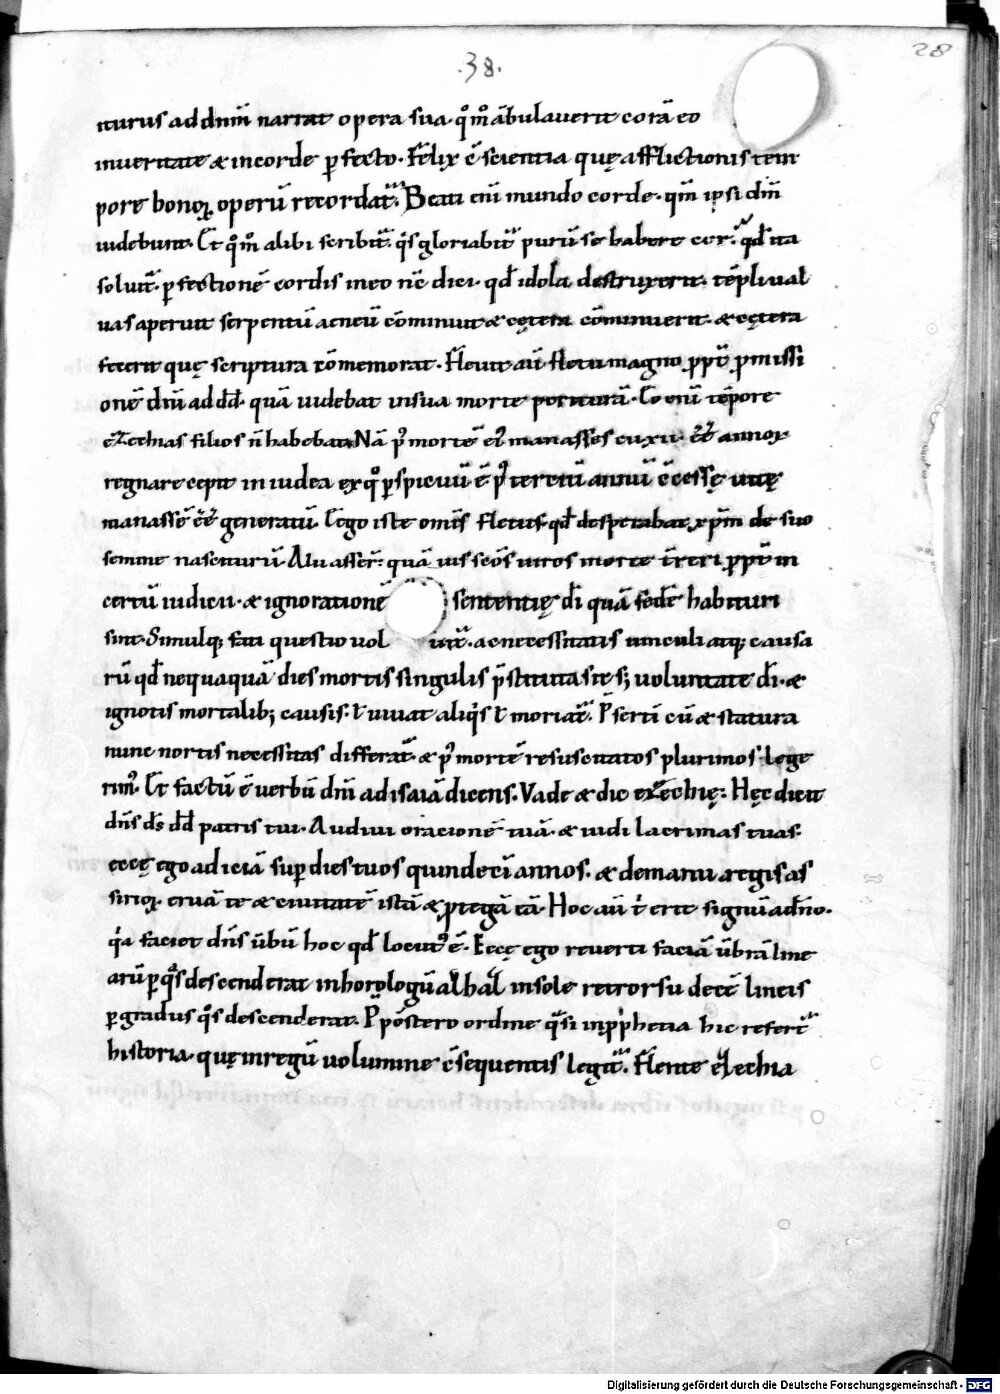 28
.38.
iturus ad dnm̄ narrat opera sua. qōm̄ ābulauerit corā eo
inueritate & incorde p̄fecto. Felix ē scientia quę afflictionis tem
pore bonoꝝ operū recordat᷑. Beati eni mundo corde. qm̄ ipsi dm̄
uidebunt. Et qōm̄ alibi scribit᷑. qis gloriabit᷑ purū se habere cor. qd̄ ita
soluit᷑. p̄fectionē cordis ineo nc̄ dici. qd̄ idola destruxerit. tēpli ual
uas aperuit serpentū aeneū cōminuit & cętera cōminuerit. & cętera
fecerit quę scriptura cōmemorat. Fleuit aū fletu magno ꝓpt̄ ꝓmissi
onē dnī ad dd̄. quā uidebat insua morte perituraī. Eo enī tēpore
ezechias filios n̄ habebat. Nā p᷒ mortē ei᷒ manasses cū xii. eēt annoꝝ
regnare cepit in iudea exqo ꝑspicuū ē p᷒ tertiū annū ēcessę uitę
manassē eē generatū. Ergo iste omīs fletus. qd̄ desperabat xpm̄ de suo
semine nasciturū. Alii asser̄. quā uis scōs uiros morte t̄reri ꝓpt̄ in
certū iudicii. & ignorationē sententię dī quā sedē habituri
sint. Simulq; fati questio uol uit᷑. ac necessitatis uinculi atq; causa
rū qd̄ nequaquā dies mortis singulis p̄stituta sit e s; uoluntate dī. &
ignotis mortalib; causis. ł uiuat aliqis ł moriat᷑. P̄serti cū & statura
nunc nortis necessitas differat᷑. & p᷒ mortē resuscitatos plurimos lege
rim᷒. Et factū ē uerbū dnī ad isaiā dicens. Vade & dic ezechię. Hęc dicit
dn̄s ds̄ dd̄ patris tui. Audiui oracionē tuā. & uidi lacrimas tuas.
eccę ego adiciā suꝑ dies tuos quindeci annos. & demanu regis as
sirioꝝ. eruā te & ciuitatē istā & ꝓtegā eā. Hoc aū t̄ erit signū adn̄o.
qia faciet dn̄s ūbū hoc qd̄ locut᷒ ē. Eccę ego reuerti faciā ūbrā line
arū ꝑ qas descenderat inhorologiū achaz insole retrorsū decē lineis
ꝑ gradus qos descenderat. P̄postero ordine qasi inp̄phetia hic refert᷑
historia. quę inregū uolumine c̄sequentis legit᷑. Flente ezechia
Digitalisierung gefördert durch die Deutsche Forschungsgemeinschaft - DFG